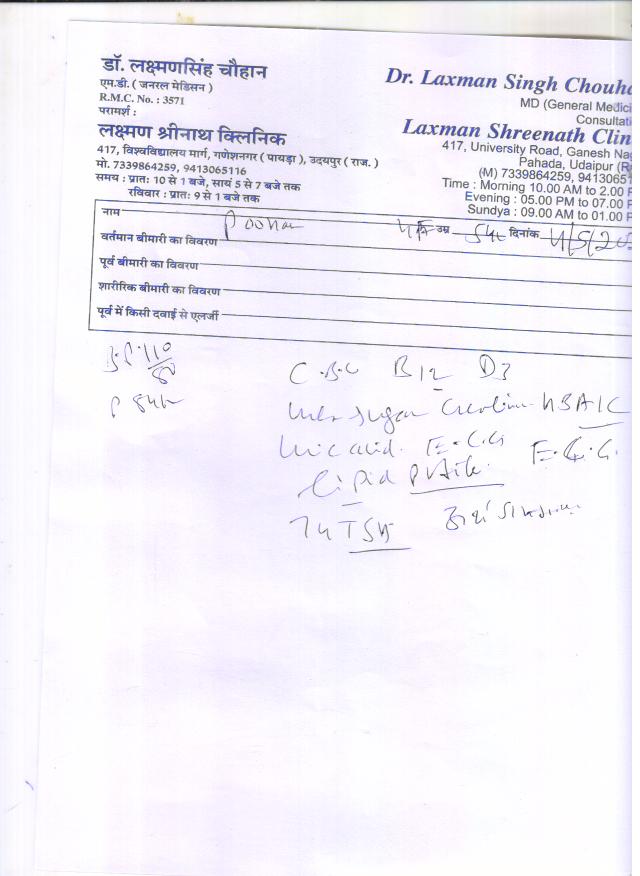 डॉ. लक्ष्मणसिंह चौहान
एम.डी. ( जनरल मेडिसन )
R.M.C. No. : 3571
परामर्श :
लक्ष्मण श्रीनाथ क्लिनिक
417, विश्वविद्यालय मार्ग, गणेशनगर ( पायड़ा ), उदयपुर ( राज. )
मो. 7339864259, 9413065116
समय : प्रातः 10 से 1 बजे, सायं 5 से 7 बजे तक
रविवार : प्रातः 9 से 1 बजे तक
Dr. Laxman Singh Chouha
MD (General Medici
Consultati
Laxman Shreenath Clin
417, University Road, Ganesh Nag
Pahada, Udaipur (R
(M) 7339864259, 9413065
Time : Morning 10.00 AM to 2.00 P
Evening : 05.00 PM to 07.00 P
Sundya : 09.00 AM to 01.00 P
नाम उम्र दिनांक 4/5/20
वर्तमान बीमारी का विवरण
पूर्व बीमारी का विवरण
शारीरिक बीमारी का विवरण
पूर्व में किसी दवाई से एलर्जी
B.P. 110/80
P 84
C.B.C B12 D3
sugar HBA1C
Uric acid. E.C.G E.C.G.
Lipid Profile
TSH